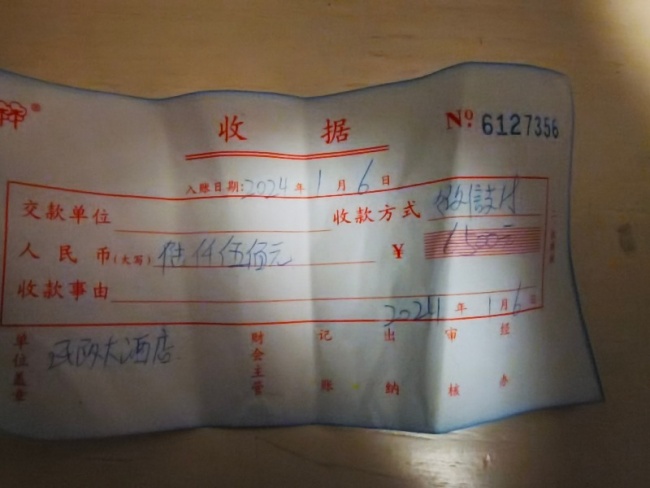 祥®
收 据 Nº 6127356
入账日期:2024年1月6日
交款单位 收款方式 微信支付
人民币(大写) 陆仟伍佰元 ¥ 6500元
收款事由
2024年1月6日
单位盖章 大酒店 财会主管 记账 出纳 审核 经办